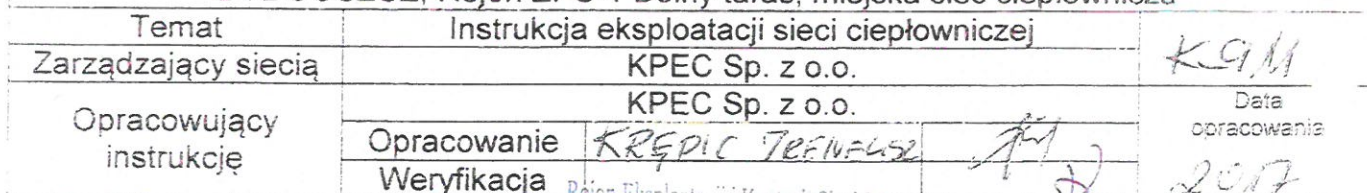 Temat Instrukcja eksploatacji sieci ciepłowniczej
Zarządzający siecią KPEC Sp. z o.o.
Opracowujący instrukcję KPEC Sp. z o.o. Data opracowania
Opracowanie KRĘPIC IRENEUSZ
Weryfikacja 2017